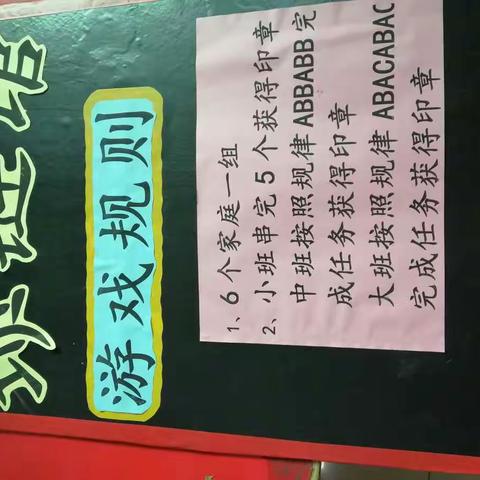 游戏规则
1、6个家庭一组
2、小班串完5个获得印章
中班按照规律ABBABB完
成任务获得印章
大班按照规律 ABACABAC
完成任务获得印章